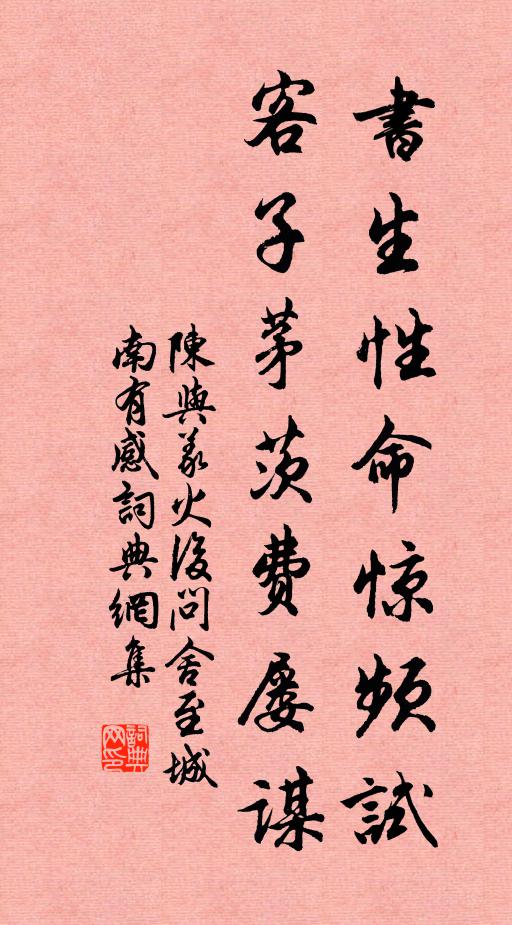 書生性命惊頻試
客子茅茨費屡謀
陳與義火後問舍至城
南有感詞典網集
詞典
网印